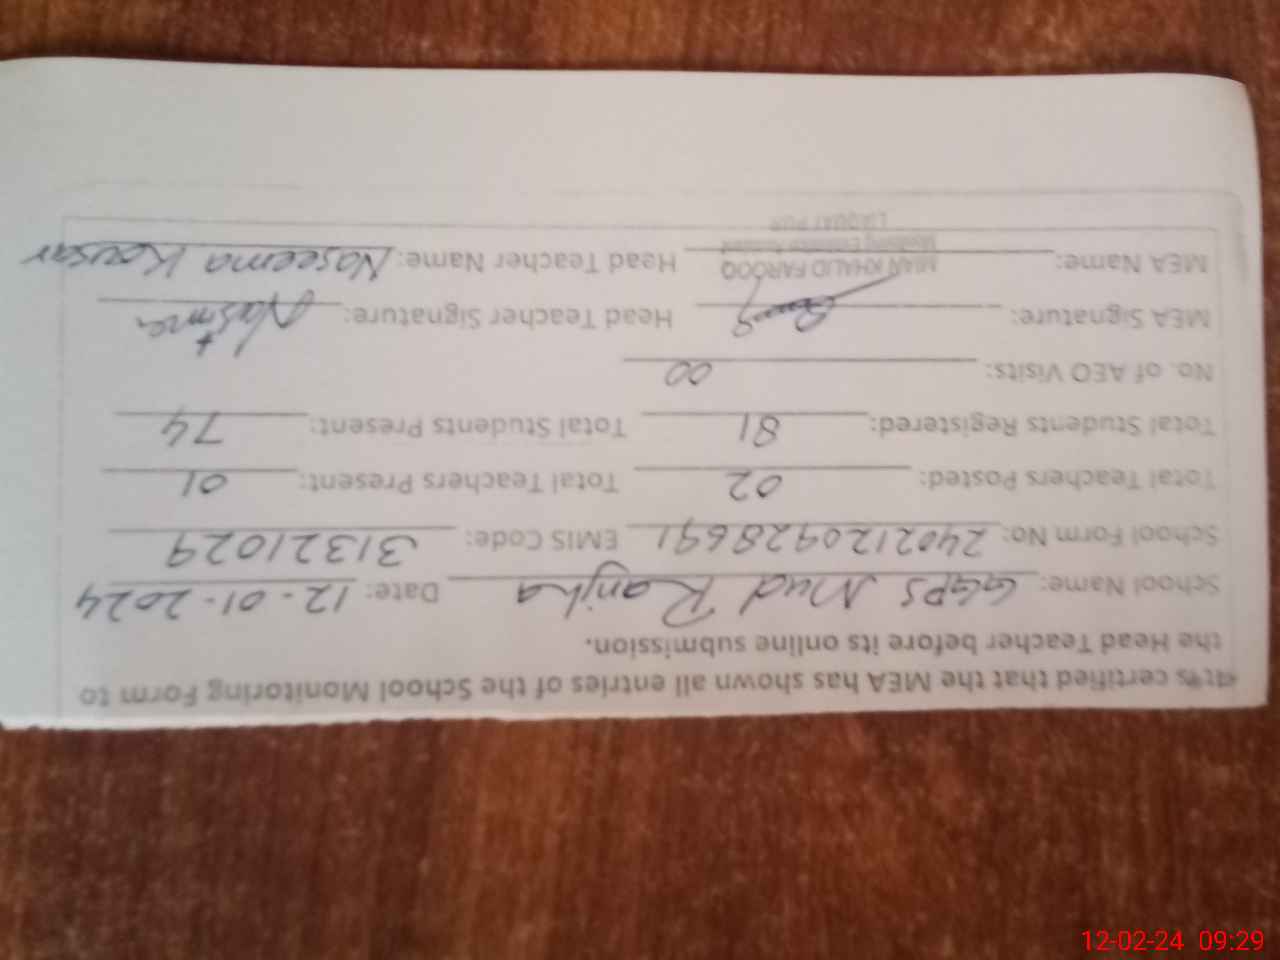 It is certified that the MEA has shown all entries of the School Monitoring Form to
the Head Teacher before its online submission.
School Name: GGPS Mud Ranjha Date: 12-01-2024
School Form No: 2402120928691 EMIS Code: 31321029
Total Teachers Posted: 02 Total Teachers Present: 01
Total Students Registered: 81 Total Students Present: 74
No. of AEO Visits: 00
MEA Signature: Head Teacher Signature:
MEA Name: MIAN KHALID FAROOQ Head Teacher Name: Naseema Kousar
LIAQUAT PUR
12-02-24 09:29